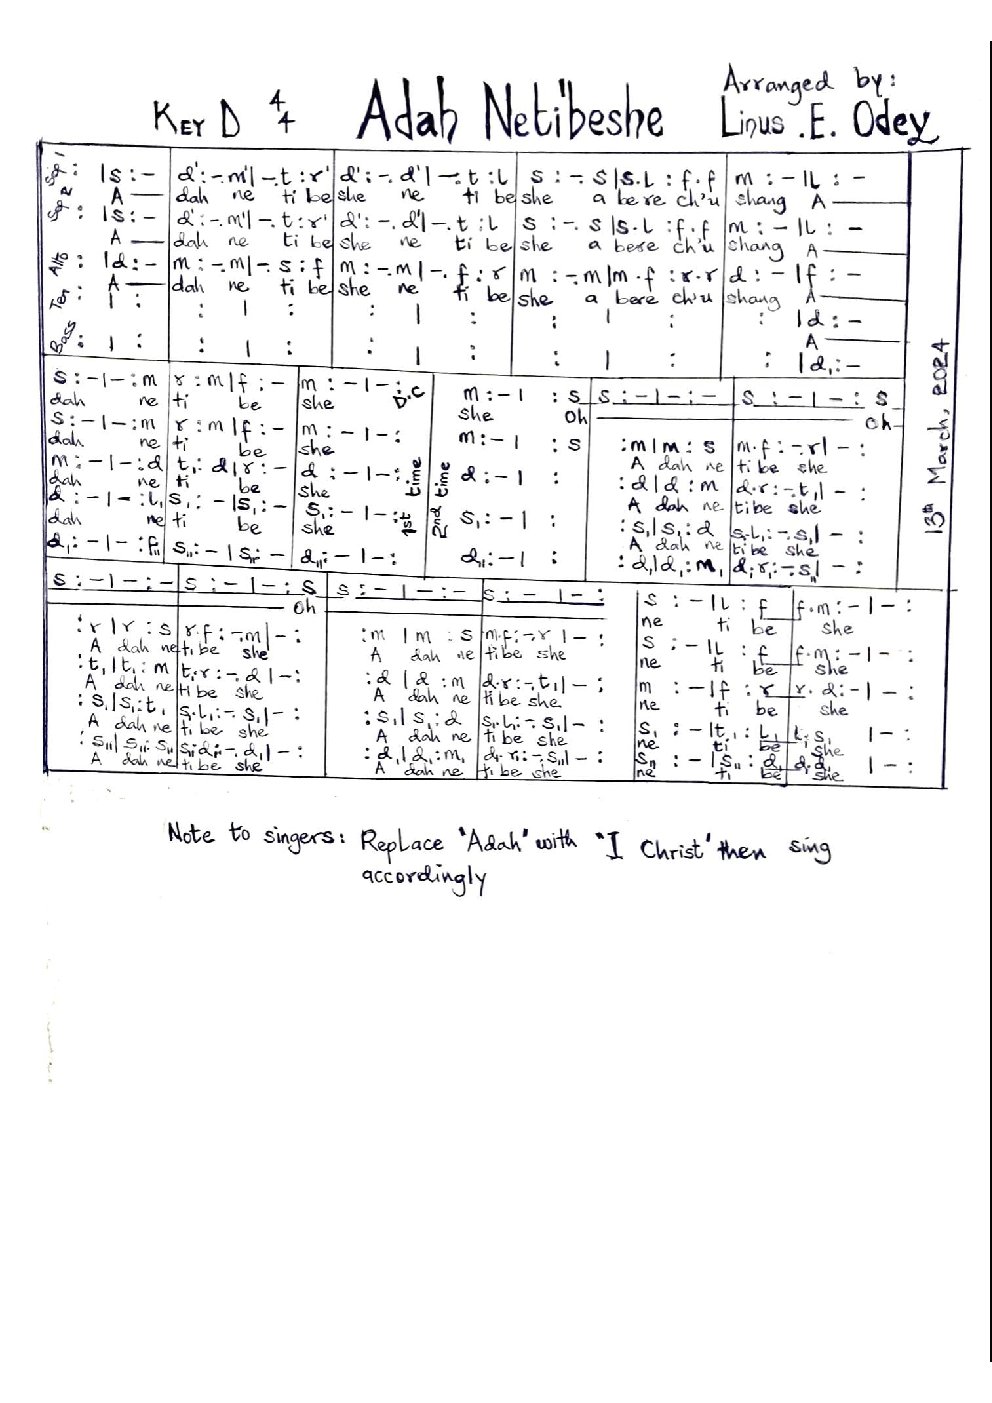 KEY D 4/4 Adah Neti'beshe Arranged by: Linus .E. Odey
Sop 1 : |s :- | d' :-.m'|-.t :r' | d' :-.d'|-.t :l | s :-.s|s.l :f.f | m :-|l :-
A dah ne ti be she ne ti be she a bere ch'u shang A
Sop 2 : |s :- | d' :-.m'|-.t :r' | d' :-.d'|-.t :l | s :-.s|s.l :f.f | m :-|l :-
A dah ne ti be she ne ti be she a bere ch'u shang A
Alto : |d :- | m :-.m|-.s :f | m :-.m|-.f :r | m :-.m|m.f :r.r | d :-|f :-
A dah ne ti be she ne ti be she a bere ch'u shang A
Ten : | : | : | : | : | : | : | : | : |d :-
A
Bass : | : | : | : | : | : | : | : | : |d, :-
s :-|-:m | r :m|f :- | m :-|-: D.C | m :-| :s | s :-|-:- | s :-|-:s
dah ne ti be she she Oh Oh
s :-|-:m | r :m|f :- | m :-|-: | m :-| :s | :m|m :s | m.f :-.r|-:
dah ne ti be she A dah ne ti be she
m :-|-:d | t, :d|r :- | d :-|-: | d :-| : | :d|d :m | d.r :-.t,|-:
dah ne ti be she A dah ne ti be she
d :-|-:l, | s, :-|s, :- | s, :-|-: | s, :-| : | :s,|s, :d | s,.l, :-.s,|-:
dah ne ti be she A dah ne ti be she
d, :-|-:f,, | s,, :-|s,, :- | d,, :-|-: | d,, :-| : | :d,|d, :m, | d,.r, :-.s,,|-:
1st time
2nd time
13th March, 2024
s :-|-:- | s :-|-:s | s :-|-:- | s :-|-: | s :-|l :f | f.m :-|-:
Oh ne ti be she
:r|r :s | r.f :-.m|-: | :m|m :s | m.f :-.r|-: | s :-|l :f | f.m :-|-:
A dah ne ti be she A dah ne ti be she ne ti be she
:t,|t, :m | t,.r :-.d|-: | :d|d :m | d.r :-.t,|-: | m :-|f :r | r.d :-|-:
A dah ne ti be she A dah ne ti be she ne ti be she
:s,|s, :t, | s,.l, :-.s,|-: | :s,|s, :d | s,.l, :-.s,|-: | s, :-|t, :l, | t,.s, |-:
A dah ne ti be she A dah ne ti be she ne ti be she
:s,,|s,, :s,, | s,,.d, :-.d,|-: | :d,|d, :m, | d,.r, :-.s,,|-: | s,, :-|s,, :d, | d,.d, |-:
A dah ne ti be she A dah ne ti be she ne ti be she
Note to singers: Replace "Adah" with "I Christ" then sing
accordingly